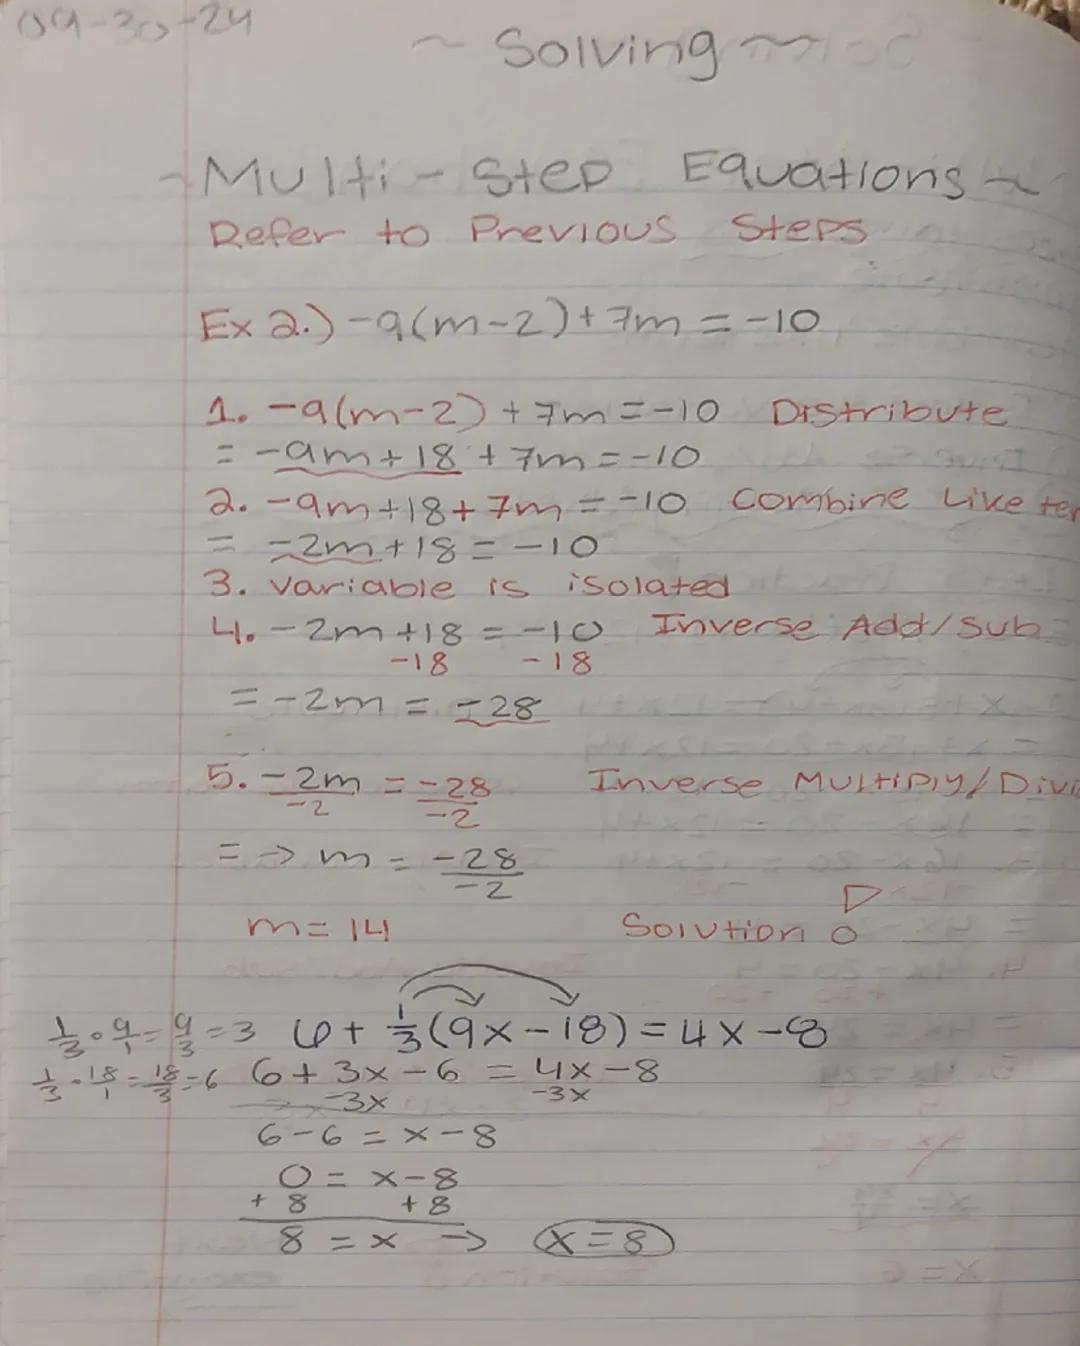 09-30-24
~ Solving ~
~ Multi-Step Equations ~
Refer to Previous Steps
Ex 2.) -9(m-2)+7m = -10
1. -9(m-2)+7m=-10 Distribute
= -9m+18+7m=-10
2. -9m+18+7m=-10 Combine Like ter
= -2m+18=-10
3. variable is isolated
4. -2m+18 = -10 Inverse Add/Sub
-18 -18
= -2m = -28
5. -2m = -28 Inverse Multiply/Divi
-2 -2
= -> m = -28
-2
m = 14 Solution
1/3 · 9/1 = 9/3 = 3 6 + 1/3(9x-18) = 4x-8
1/3 · 18/1 = 18/3 = 6 6 + 3x - 6 = 4x - 8
-3x -3x
6-6 = x-8
0 = x-8
+8 +8
8 = x -> x=8